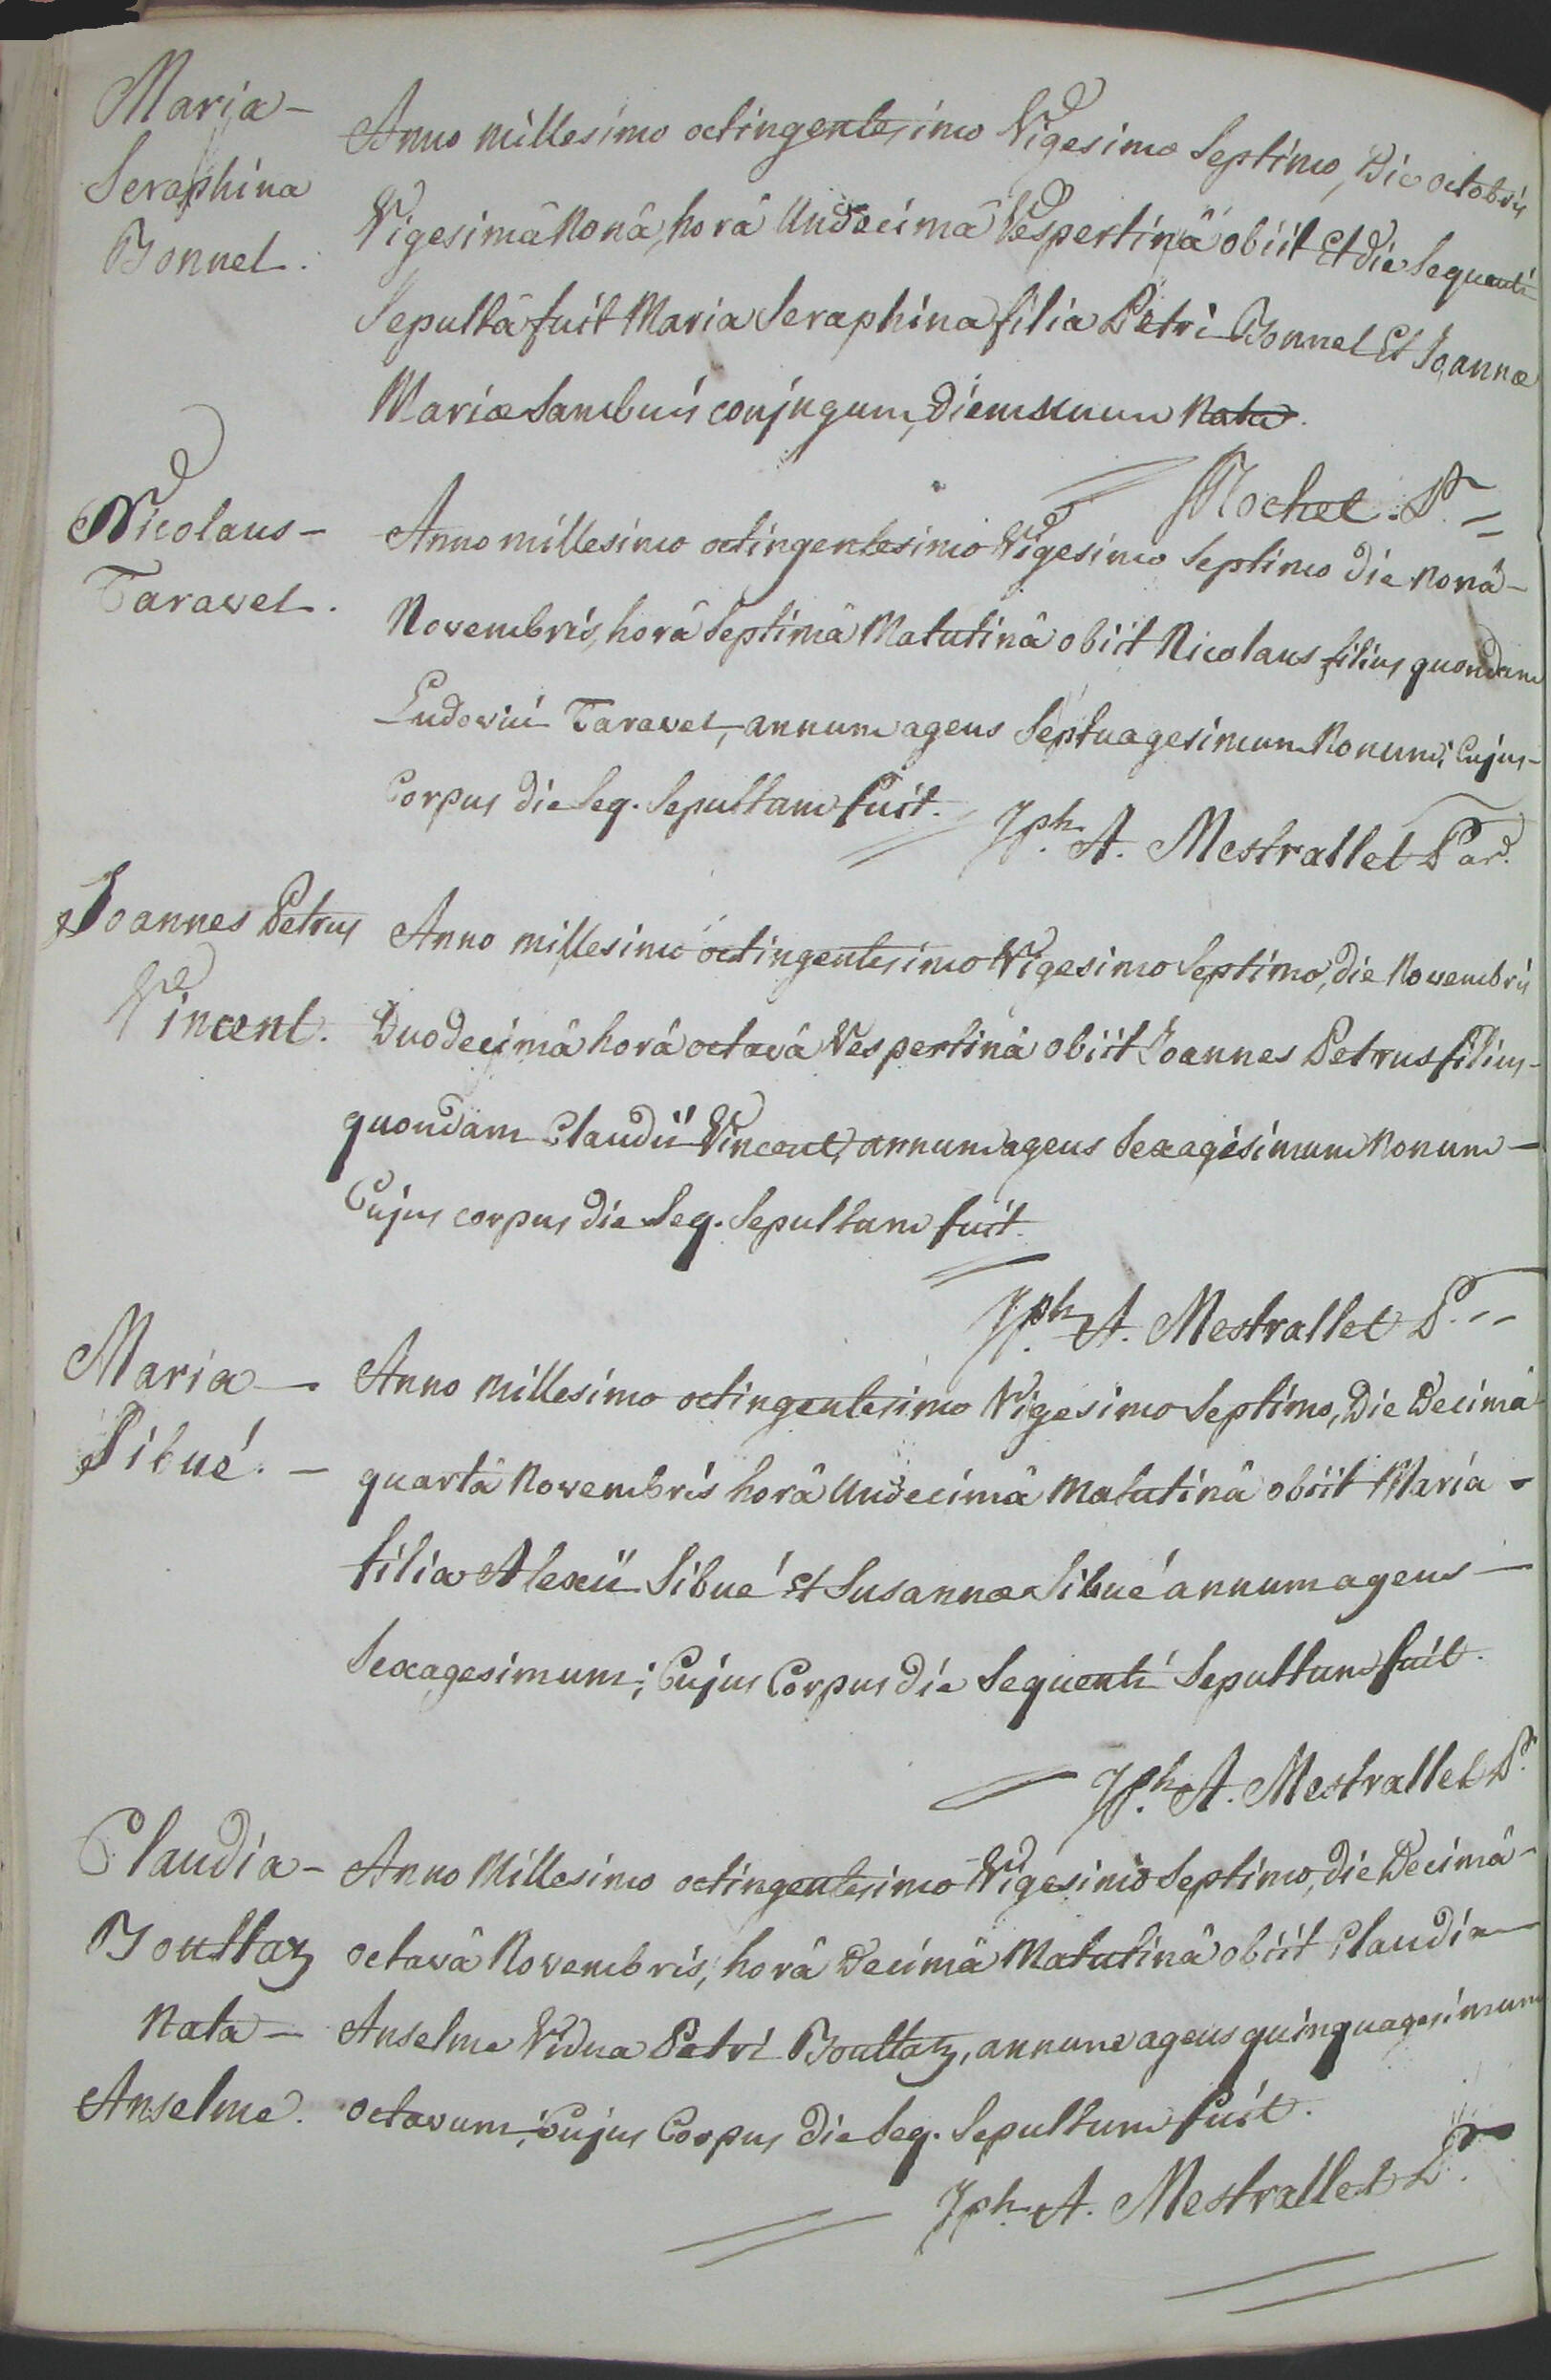 Maria-
Seraphina
Bonnel.
Anno millesimo octingentesimo Vigesimo Septimo, Die octobris
Vigesimâ Nonâ, horâ Undecimâ Vespertinâ obiit Et die Sequenti
Sepulta fuit Maria Seraphina filia Petri Bonnel Et Joannæ
Mariæ Sambuis conjugum, Diem unum Nata.
Mochet. P.
Nicolaus-
Taravel.
Anno millesimo octingentesimo Vigesimo Septimo die Nonâ-
Novembris, horâ Septimâ Matutinâ obiit Nicolaus filius quondam
Ludovici Taravel, annum agens Septuagesimum Nonum; Cujus-
Corpus die Seq. Sepultum fuit.
Jph. A. Mestrallet Par.
Joannes Petrus
Vincent.
Anno millesimo octingentesimo Vigesimo Septimo, die Novembris
Duodecimâ horâ octavâ Vespertinâ obiit Joannes Petrus filius-
quondam Claudii Vincent, annum agens Sexagesimum Nonum-
Cujus corpus die Seq. Sepultum fuit.
Jph. A. Mestrallet P.
Maria-
Sibué.-
Anno Millesimo octingentesimo Vigesimo Septimo, Die Decimâ
quartâ Novembris horâ Undecimâ Matutinâ obiit Maria-
filia Alexii Sibué et Susannæ Sibué annum agens-
Sexagesimum; Cujus Corpus die Sequenti Sepultum fuit.
Jph. A. Mestrallet P.
Claudia-
Bouttaz
Nata-
Anselme.
Anno Millesimo octingentesimo Vigesimo Septimo, die Decimâ-
octavâ Novembris, horâ Decimâ Matutinâ obiit Claudia-
Anselme Vidua Petri Bouttaz, annum agens quinquagesimum
octavum; Cujus Corpus die Seq. Sepultum fuit.
Jph. A. Mestrallet P.